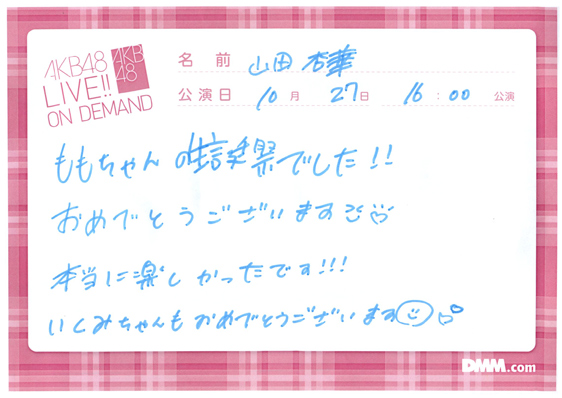 AKB48
LIVE!!
ON DEMAND
AKB
48
名前 山田 杏華
公演日 10月 27日 16:00 公演
ももちゃんの生誕祭でした!!
おめでとうございます
本当に楽しかったです!!!
いくみちゃんもおめでとうございます
DMM.com